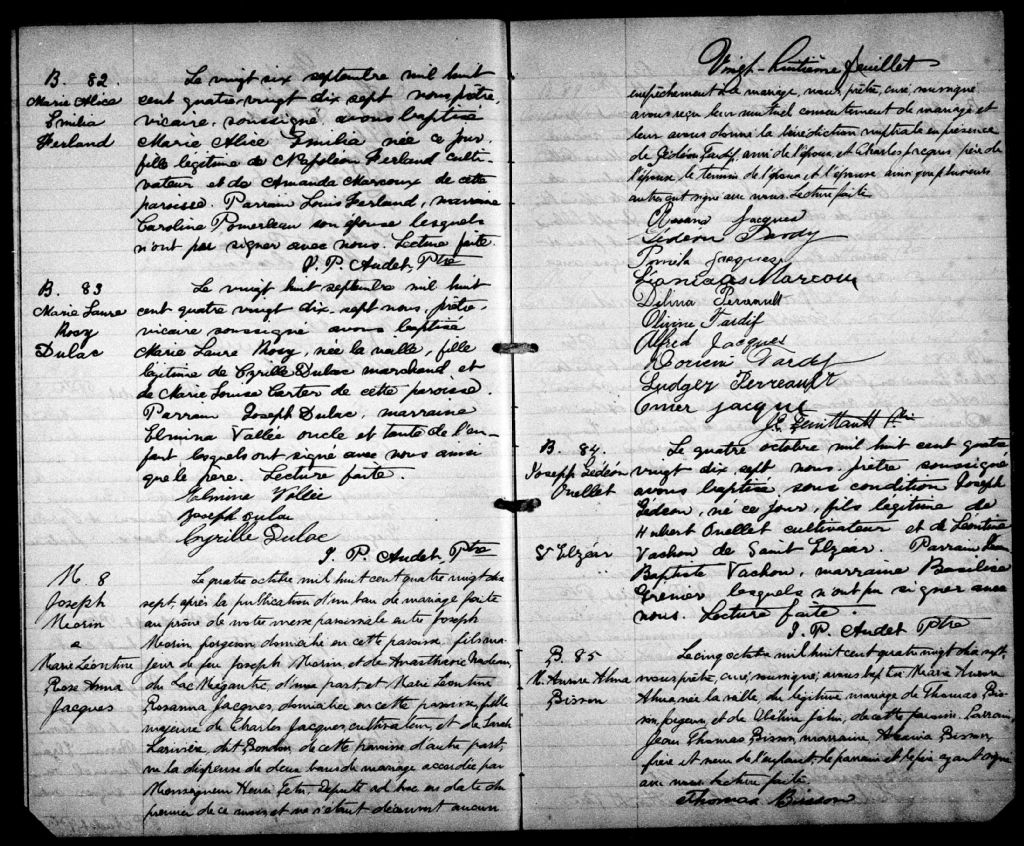 B. 82.
Marie Alice
Emilia
Ferland
Le vingt six septembre mil huit
cent quatre-vingt dix sept nous prêtre,
vicaire, soussigné avons baptisé
Marie Alice Emilia née ce jour,
fille légitime de Napoléon Ferland culti-
vateur et de Amanda Marcoux de cette
paroisse. Parrain Louis Ferland, marraine
Caroline Pomerleau son épouse lesquels
n'ont pu signer avec nous. Lecture faite.
J. P. Audet, Ptre
B. 83
Marie Laure
Rosy
Dulac
Le vingt huit septembre mil huit
cent quatre vingt dix-sept nous, prêtre,
vicaire soussigné avons baptisé
Marie Laure Rosy, née la veille, fille
légitime de Cyrille Dulac marchand et
de Marie Louise Carter de cette paroisse.
Parrain Joseph Dulac, marraine
Elmina Vallée oncle et tante de l'en-
fant lesquels ont signé avec nous ainsi
que le père. Lecture faite.
Elmina Vallée
Joseph Dulac
Cyrille Dulac
J. P. Audet, Ptre
M. 8
Joseph
Morin
&
Marie Léontine
Rose Anna
Jacques
Le quatre octobre mil huit cent quatre vingt dix
sept, après la publication d'un ban de mariage faite
au prône de notre messe paroissiale entre Joseph
Morin forgeron domicilié en cette paroisse, fils ma-
jeur de feu Joseph Morin, et de Nadeau,
du Lac Mégantic, d'une part, et Marie Léontine
Rosanna Jacques, domiciliée en cette paroisse, fille
majeure de Charles Jacques cultivateur, et de Sarah
Larivière, dit Bondon, de cette paroisse d'autre part,
vu la dispense de deux bans de mariage accordée par
Monseigneur Henri Têtu, Député ad hoc en date du
premier de ce mois et ne s'étant découvert aucun
Vingt-huitième feuillet
empêchement à ce mariage, nous, prêtre, curé, soussigné
avons reçu leur mutuel consentement de mariage et
leur avons donné la bénédiction nuptiale en présence
de Gédéon Tardif, ami de l'époux, et Charles Jacques, père de
l'épouse, le témoin de l'époux, et l'épouse ainsi que plusieurs
autres ont signé avec nous. Lecture faite
Rosana Jacques
Gédéon Tardif
Jacques
Marcoux
Délina Perault
Olivine Tardif
Alfred Jacques
Tardif
Ludger Perreault
Omer Jacque
B. 84.
Joseph Gédéon
Ouellet
St Elzéar
Le quatre octobre mil huit cent quatre
vingt dix sept nous prêtre soussigné
avons baptisé sous condition Joseph
Gédéon, né ce jour, fils légitime de
Hubert Ouellet cultivateur et de Léontine
Vachon de Saint Elzéar. Parrain Jean
Baptiste Vachon, marraine Basilice
Grenier lesquels n'ont pu signer avec
nous. Lecture faite.
J. P. Audet Ptre
B. 85
M. Aurore Alma
Bisson
Le cinq octobre mil huit cent quatre vingt dix sept,
nous prêtre, curé, soussigné, avons baptisé Marie Aurore
Alma, née la veille, du légitime mariage de Thomas Bis-
son, forgeron, et de de cette paroisse. Parrain,
Jean Thomas Bisson, marraine Bisson,
frère et sœur de l'enfant. Le parrain et le père ayant signé
avec nous. Lecture faite.
Thomas Bisson